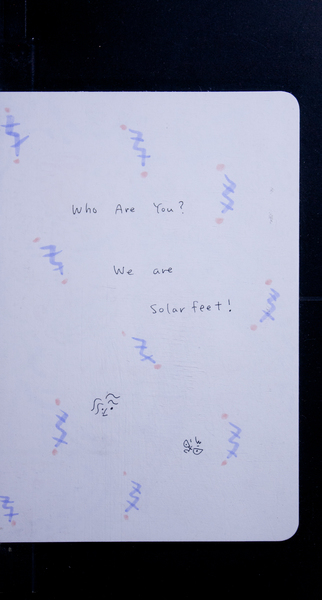 Who Are You?
We are
Solar feet!